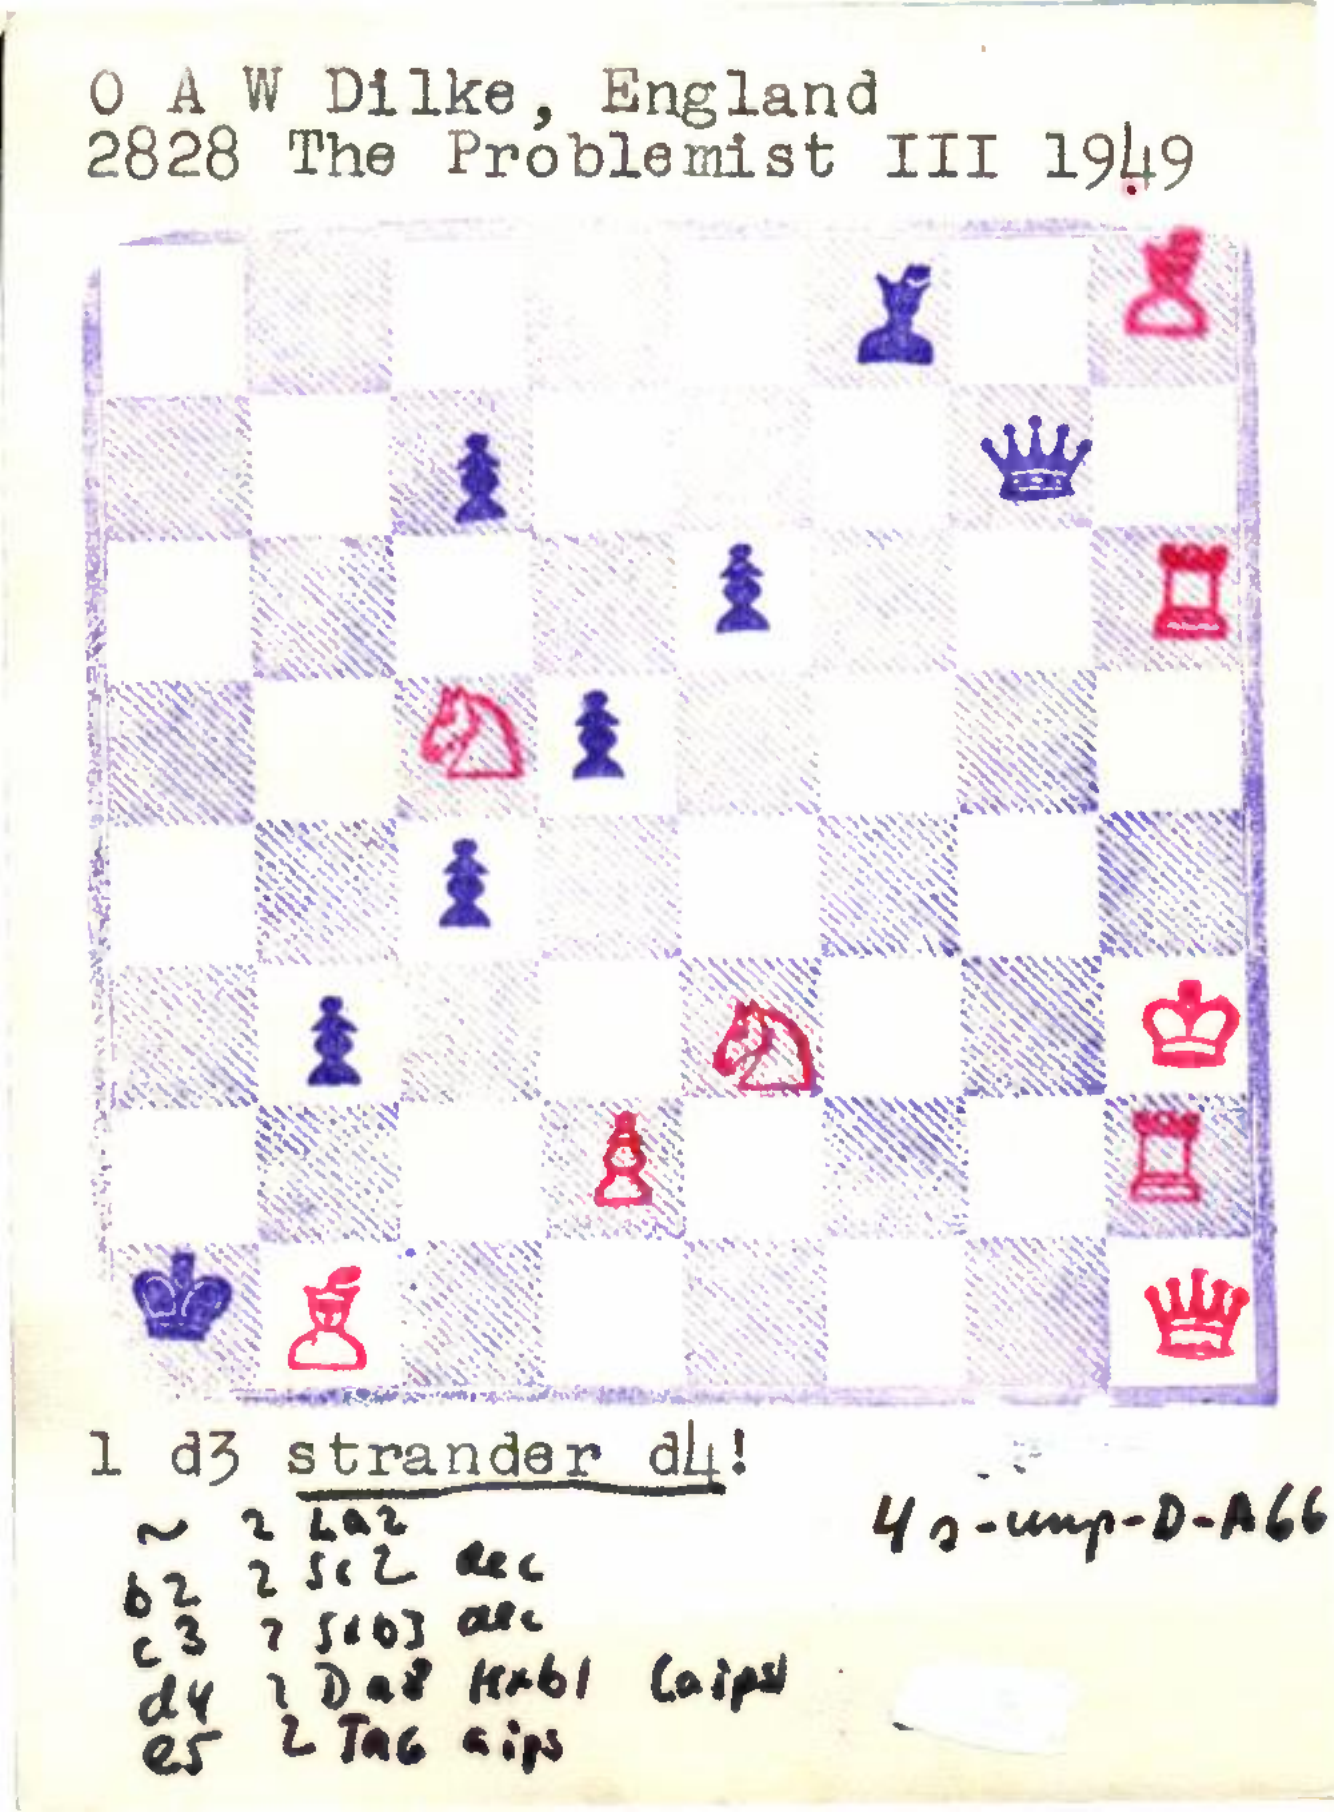 O A W Dilke, England
2828 The Problemist III 1949
1 d3 strander d4!
~ 2 La2
b2 2 Sc2 dec
c3 2 Sdb3 dec
d4 2 Da8 Kxb1
e5 2 Ta6 aips
4s-ump-D-A66